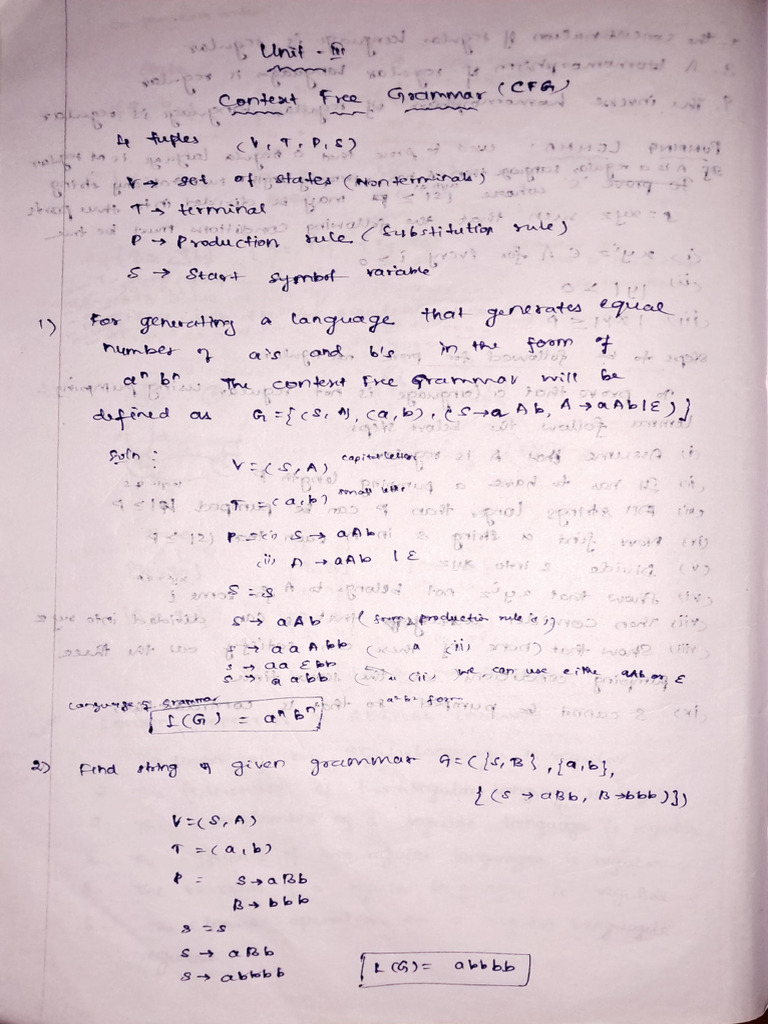 Unit - III
Context Free Grammar (CFG)
4 tuples (V, T, P, S)
V → set of states (Non terminals)
T → terminal
P → Production rule (Substitution rule)
S → Start symbol variable
1) For generating a language that generates equal
number of a's and b's in the form of
aⁿ bⁿ The context Free Grammar will be
defined as G = {(S, A), (a, b), (S → a Ab, A → aAb | ε)}
Soln :
V = (S, A) capital letter
T = (a, b) small letter
P = (i) S → aAb
(ii) A → aAb | ε
S = S
S → aAb (from production rule (i))
S → aaAbb ( " (ii)
S → aa εbb
S → aabb ( " (ii) we can use either aAb or ε
a²b² form
Language & Grammar
L(G) = aⁿ bⁿ
2) Find string of given grammar G = ({S, B}, {a, b},
{(S → aBb, B → bbb)})
V = (S, A)
T = (a, b)
P = S → aBb
B → bbb
S = S
S → aBb
S → abbbb
L(G) = abbbb